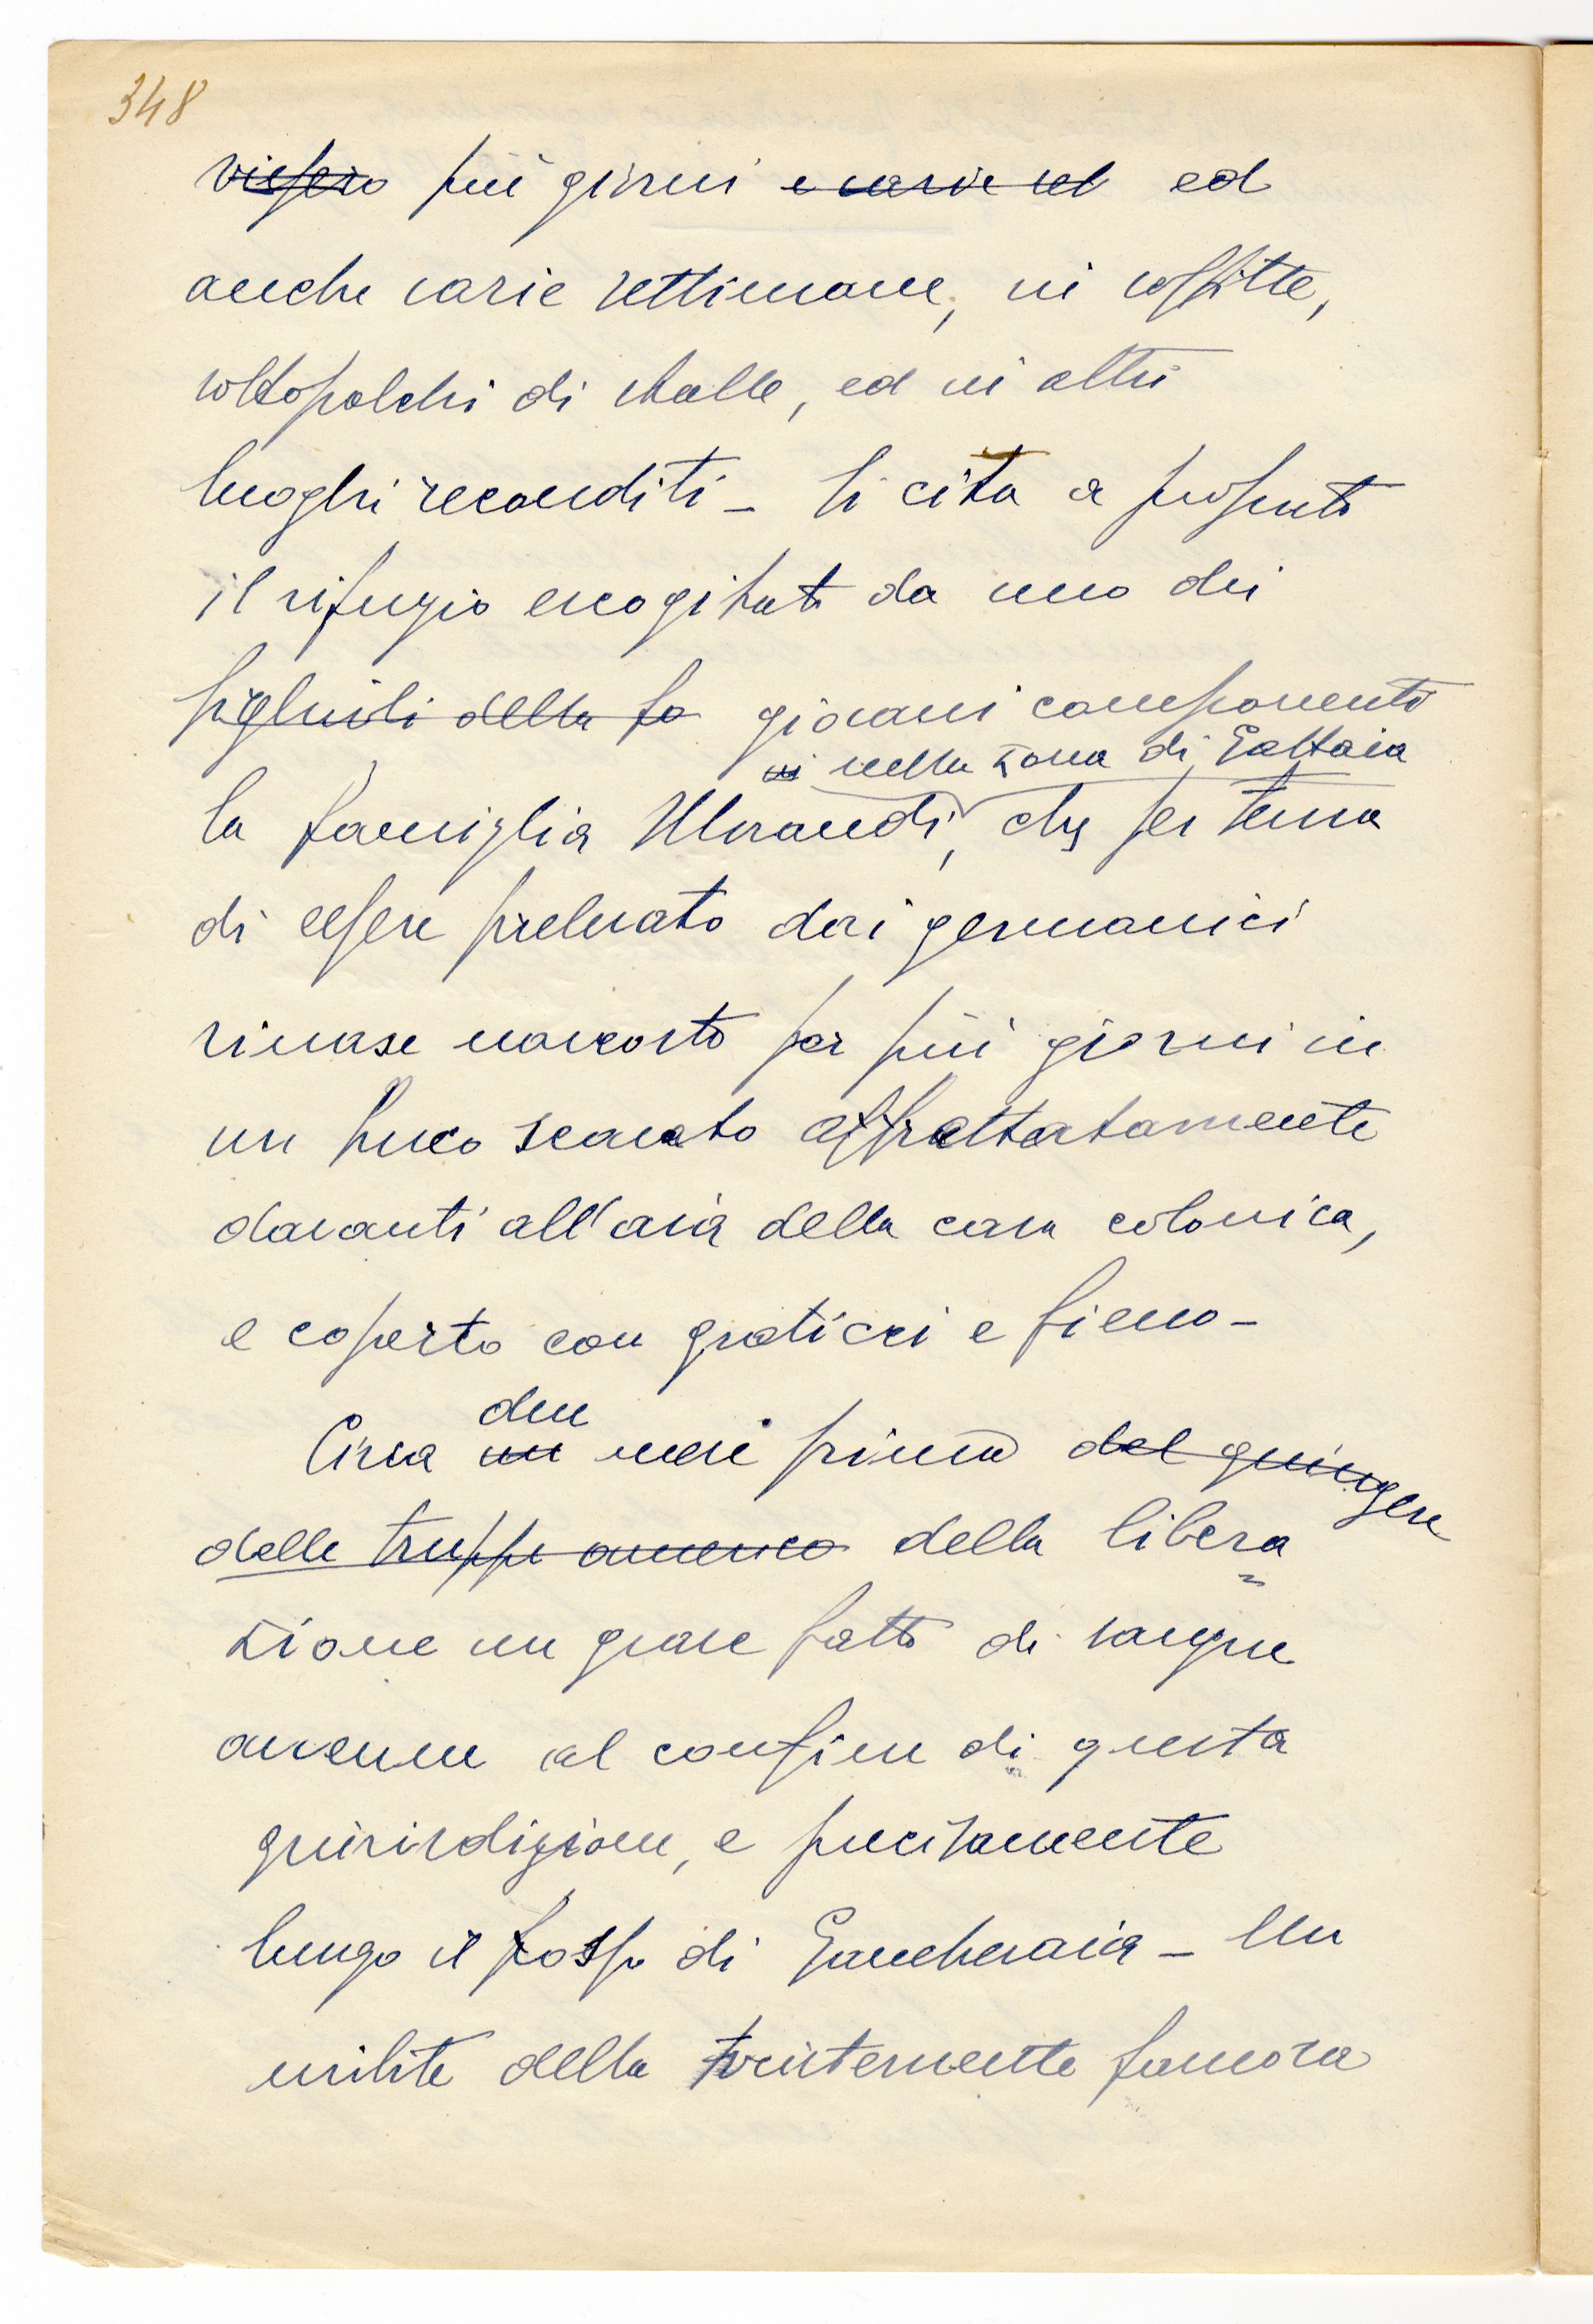 348
vissero più giorni e varie set ed
anche varie settimane, in soffitte,
sottopalchi di stalle, ed in altri
luoghi reconditi - Si cita a proposito
il rifugio escogitato da uno dei
figliuoli della fa giovani componenti
in nella zona di Gattaia
la famiglia Morandi, che per tema
di essere prelevato dai germanici
rimase nascosto per più giorni in
un buco scavato affrettatamente
davanti all'aia della casa colonica,
e coperto con graticci e fieno -
due
Circa un mesi prima del giungere
delle truppe americo della libera
zione un grave fatto di sangue
avvenne al confine di questa
giurisdizione, e precisamente
lungo il fosso di - Un
milite della tristemente famosa